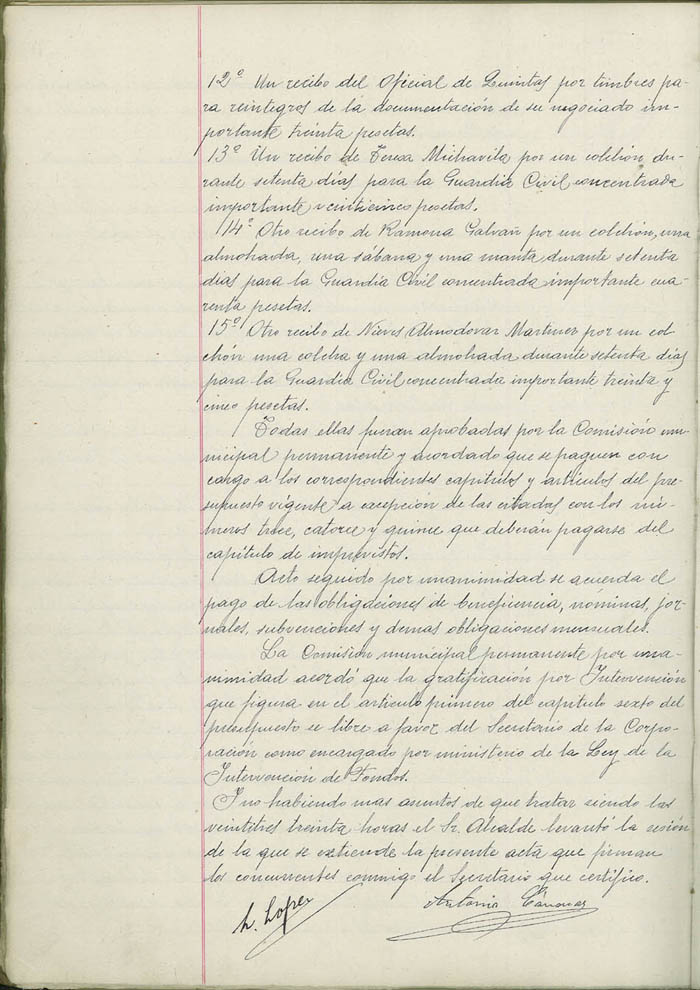 12º Un recibo del Oficial de Quintas por timbres pa-
ra reintegros de la documentación de su negociado im-
portante treinta pesetas.
13º Un recibo de Teresa Michavila por un colchón du-
rante setenta días para la Guardia Civil concentrada
importante veinticinco pesetas.
14º Otro recibo de Ramona Galvañ por un colchón, una
almohada, una sábana y una manta durante setenta
dias para la Guardia Civil concentrada importante cua-
renta pesetas.
15º Otro recibo de Nieves Almodovar Martinez por un col-
chón una colcha y una almohada durante setenta días
para la Guardia Civil concentrada importante treinta y
cinco pesetas.
Todas ellas fueron aprobadas por la Comisión mu-
nicipal permanente y acordado que se paguen con
cargo a los correspondientes capitulos y artículos del pre-
supuesto vigente a excepción de las citadas con los nú-
meros trece, catorce y quince que deberán pagarse del
capitulo de imprevistos.
Acto seguido por unanimidad se acuerda el
pago de las obligaciones de beneficencia, nóminas, jor-
nales, subvenciones y demas obligaciones mensuales.
La Comision municipal permanente por una-
nimidad acordó que la gratificación por Intervención
que figura en el articulo primero del capitulo sexto del
presupuesto se libre a favor del Secretario de la Corpo-
ración como encargado por ministerio de la Ley de la
Intervención de Fondos.
Y no habiendo mas asuntos de que tratar siendo las
veintitres treinta horas el Sr. Alcalde levantó la sesión
de la que se extiende la presente acta que firman
los concurrentes conmigo el Secretario que certifico.
L. Lopez
Antonio Cánovas